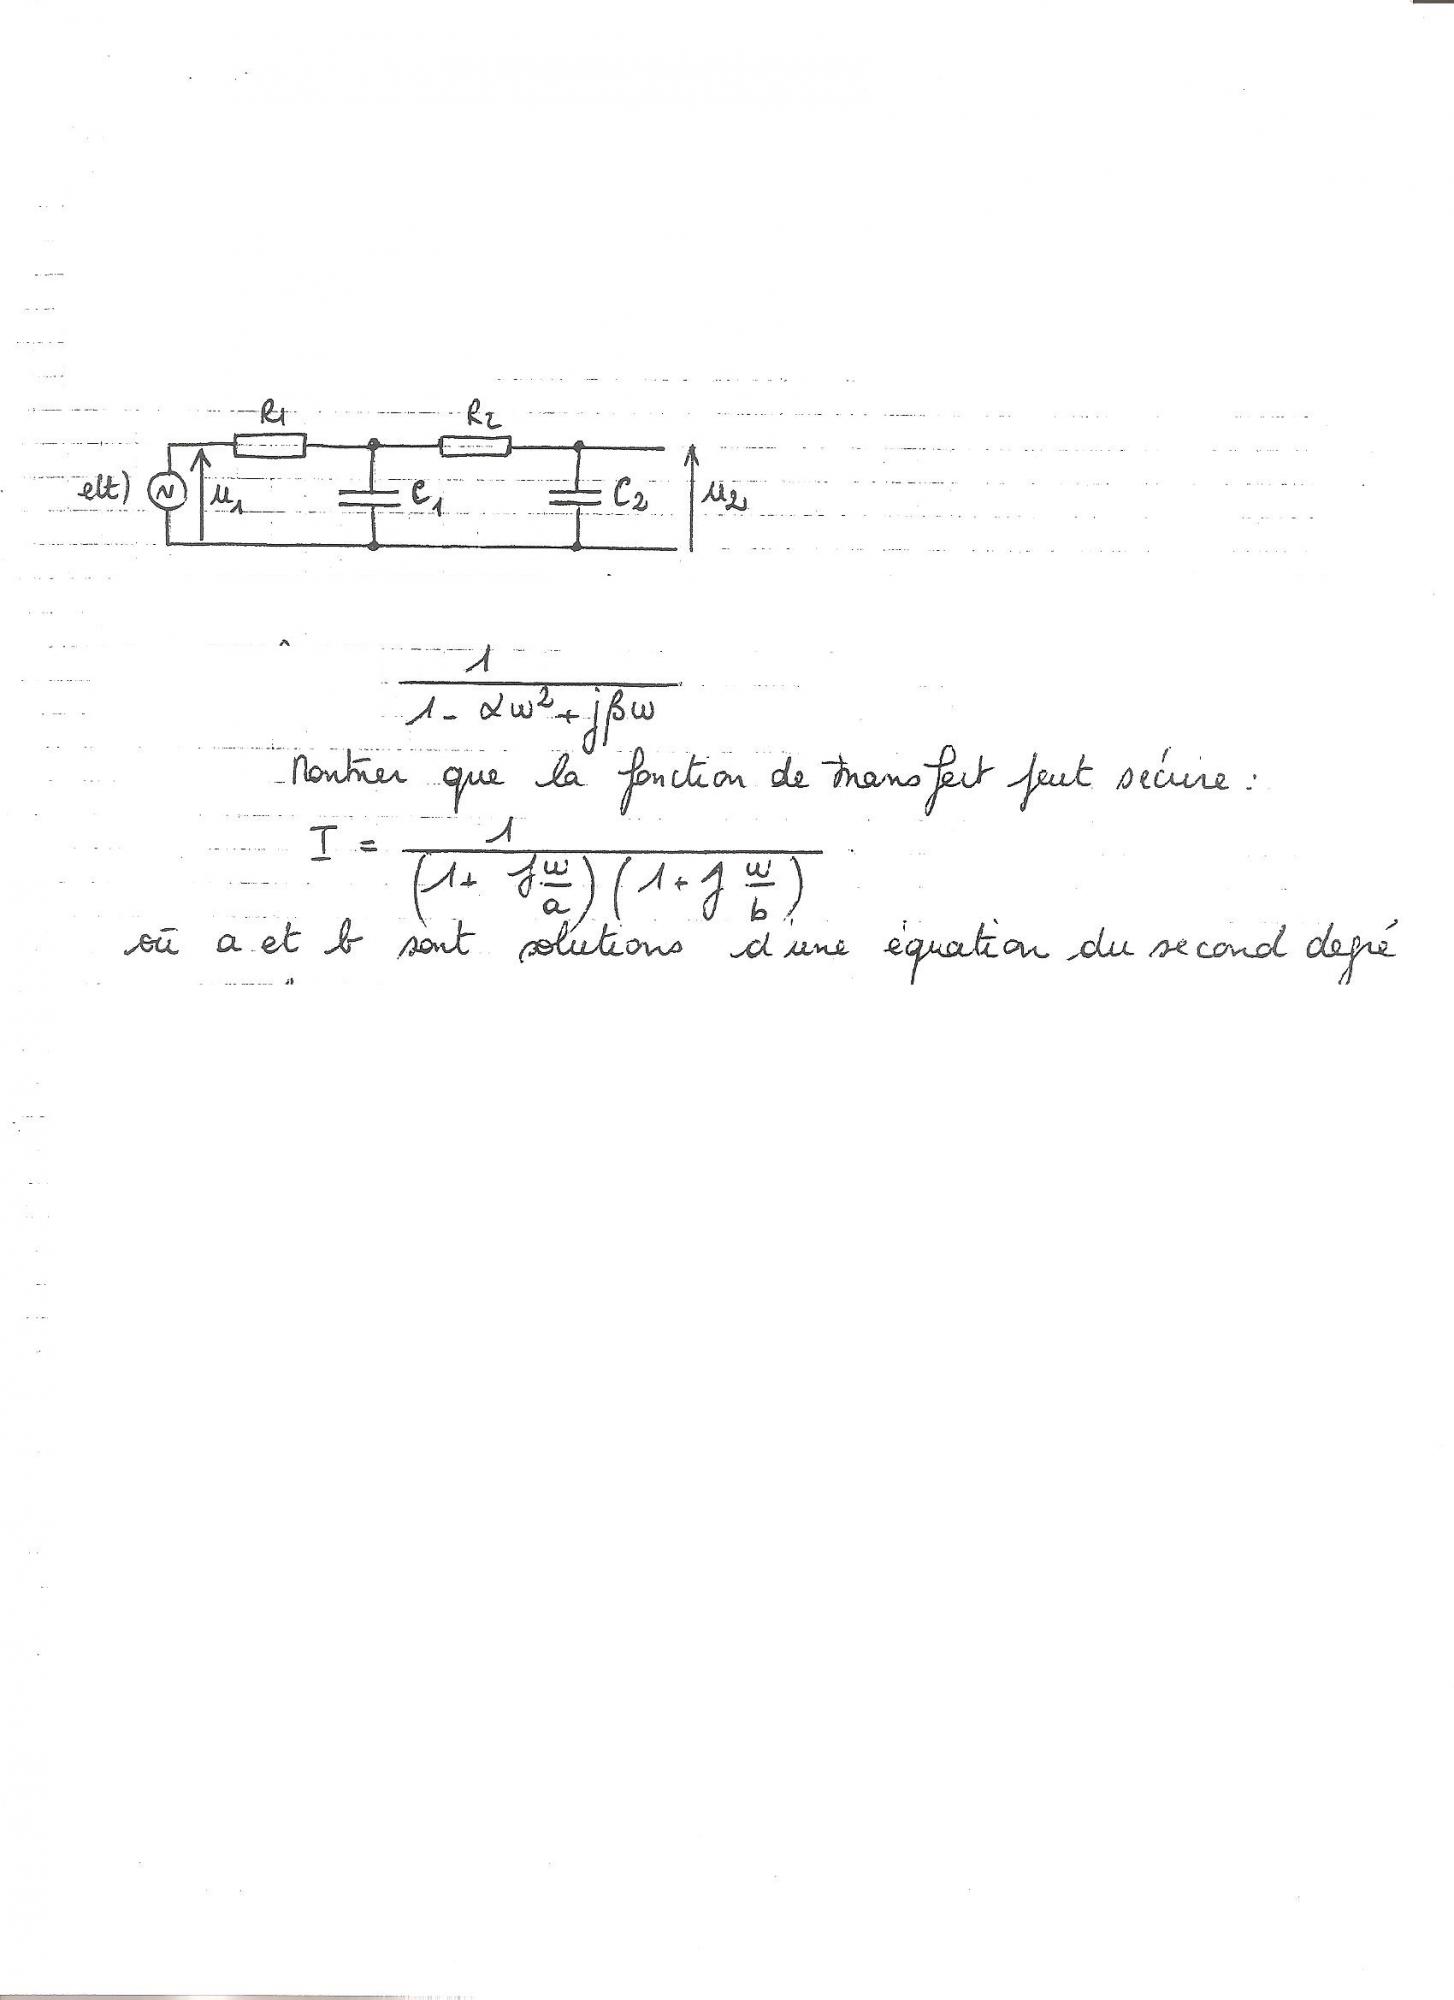 R1 R2
e(t) ~ u1 C1 C2 u2
1
1 - αω² + jβω
Montrer que la fonction de transfert peut sécrire :
T = 1
(1 + j ω/a) (1 + j ω/b)
où a et b sont solutions d'une équation du second degré